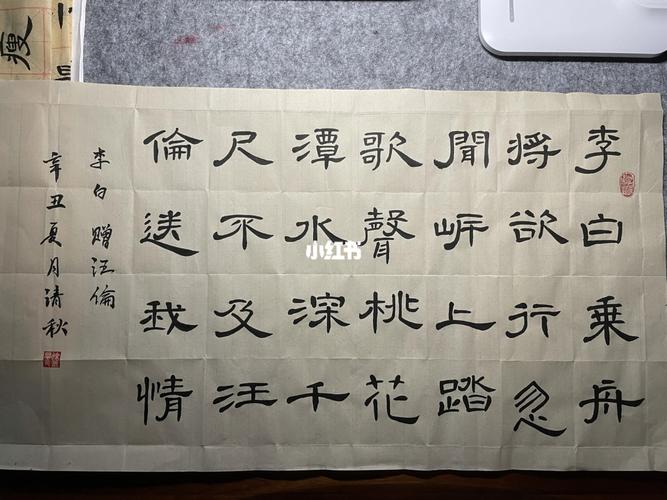 李白乘舟
将欲行忽
聞岸上踏
歌聲桃花
潭水深千
尺不及汪
倫送我情
李白贈汪倫
辛丑夏月秋
瘦
小红书